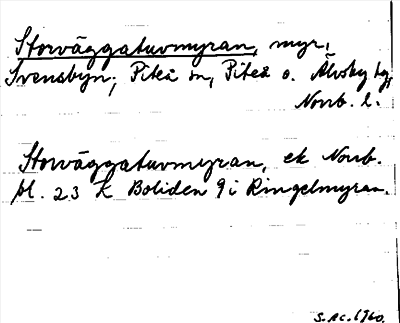 Storväggatuvmyran, myr,
Svensbyn, Piteå sn, Piteå o. Älvsby tg,
Norrb. l.
Storväggatuvmyran, ek Norrb.
bl. 23 K Boliden 9 i Ringelmyran.
1960.